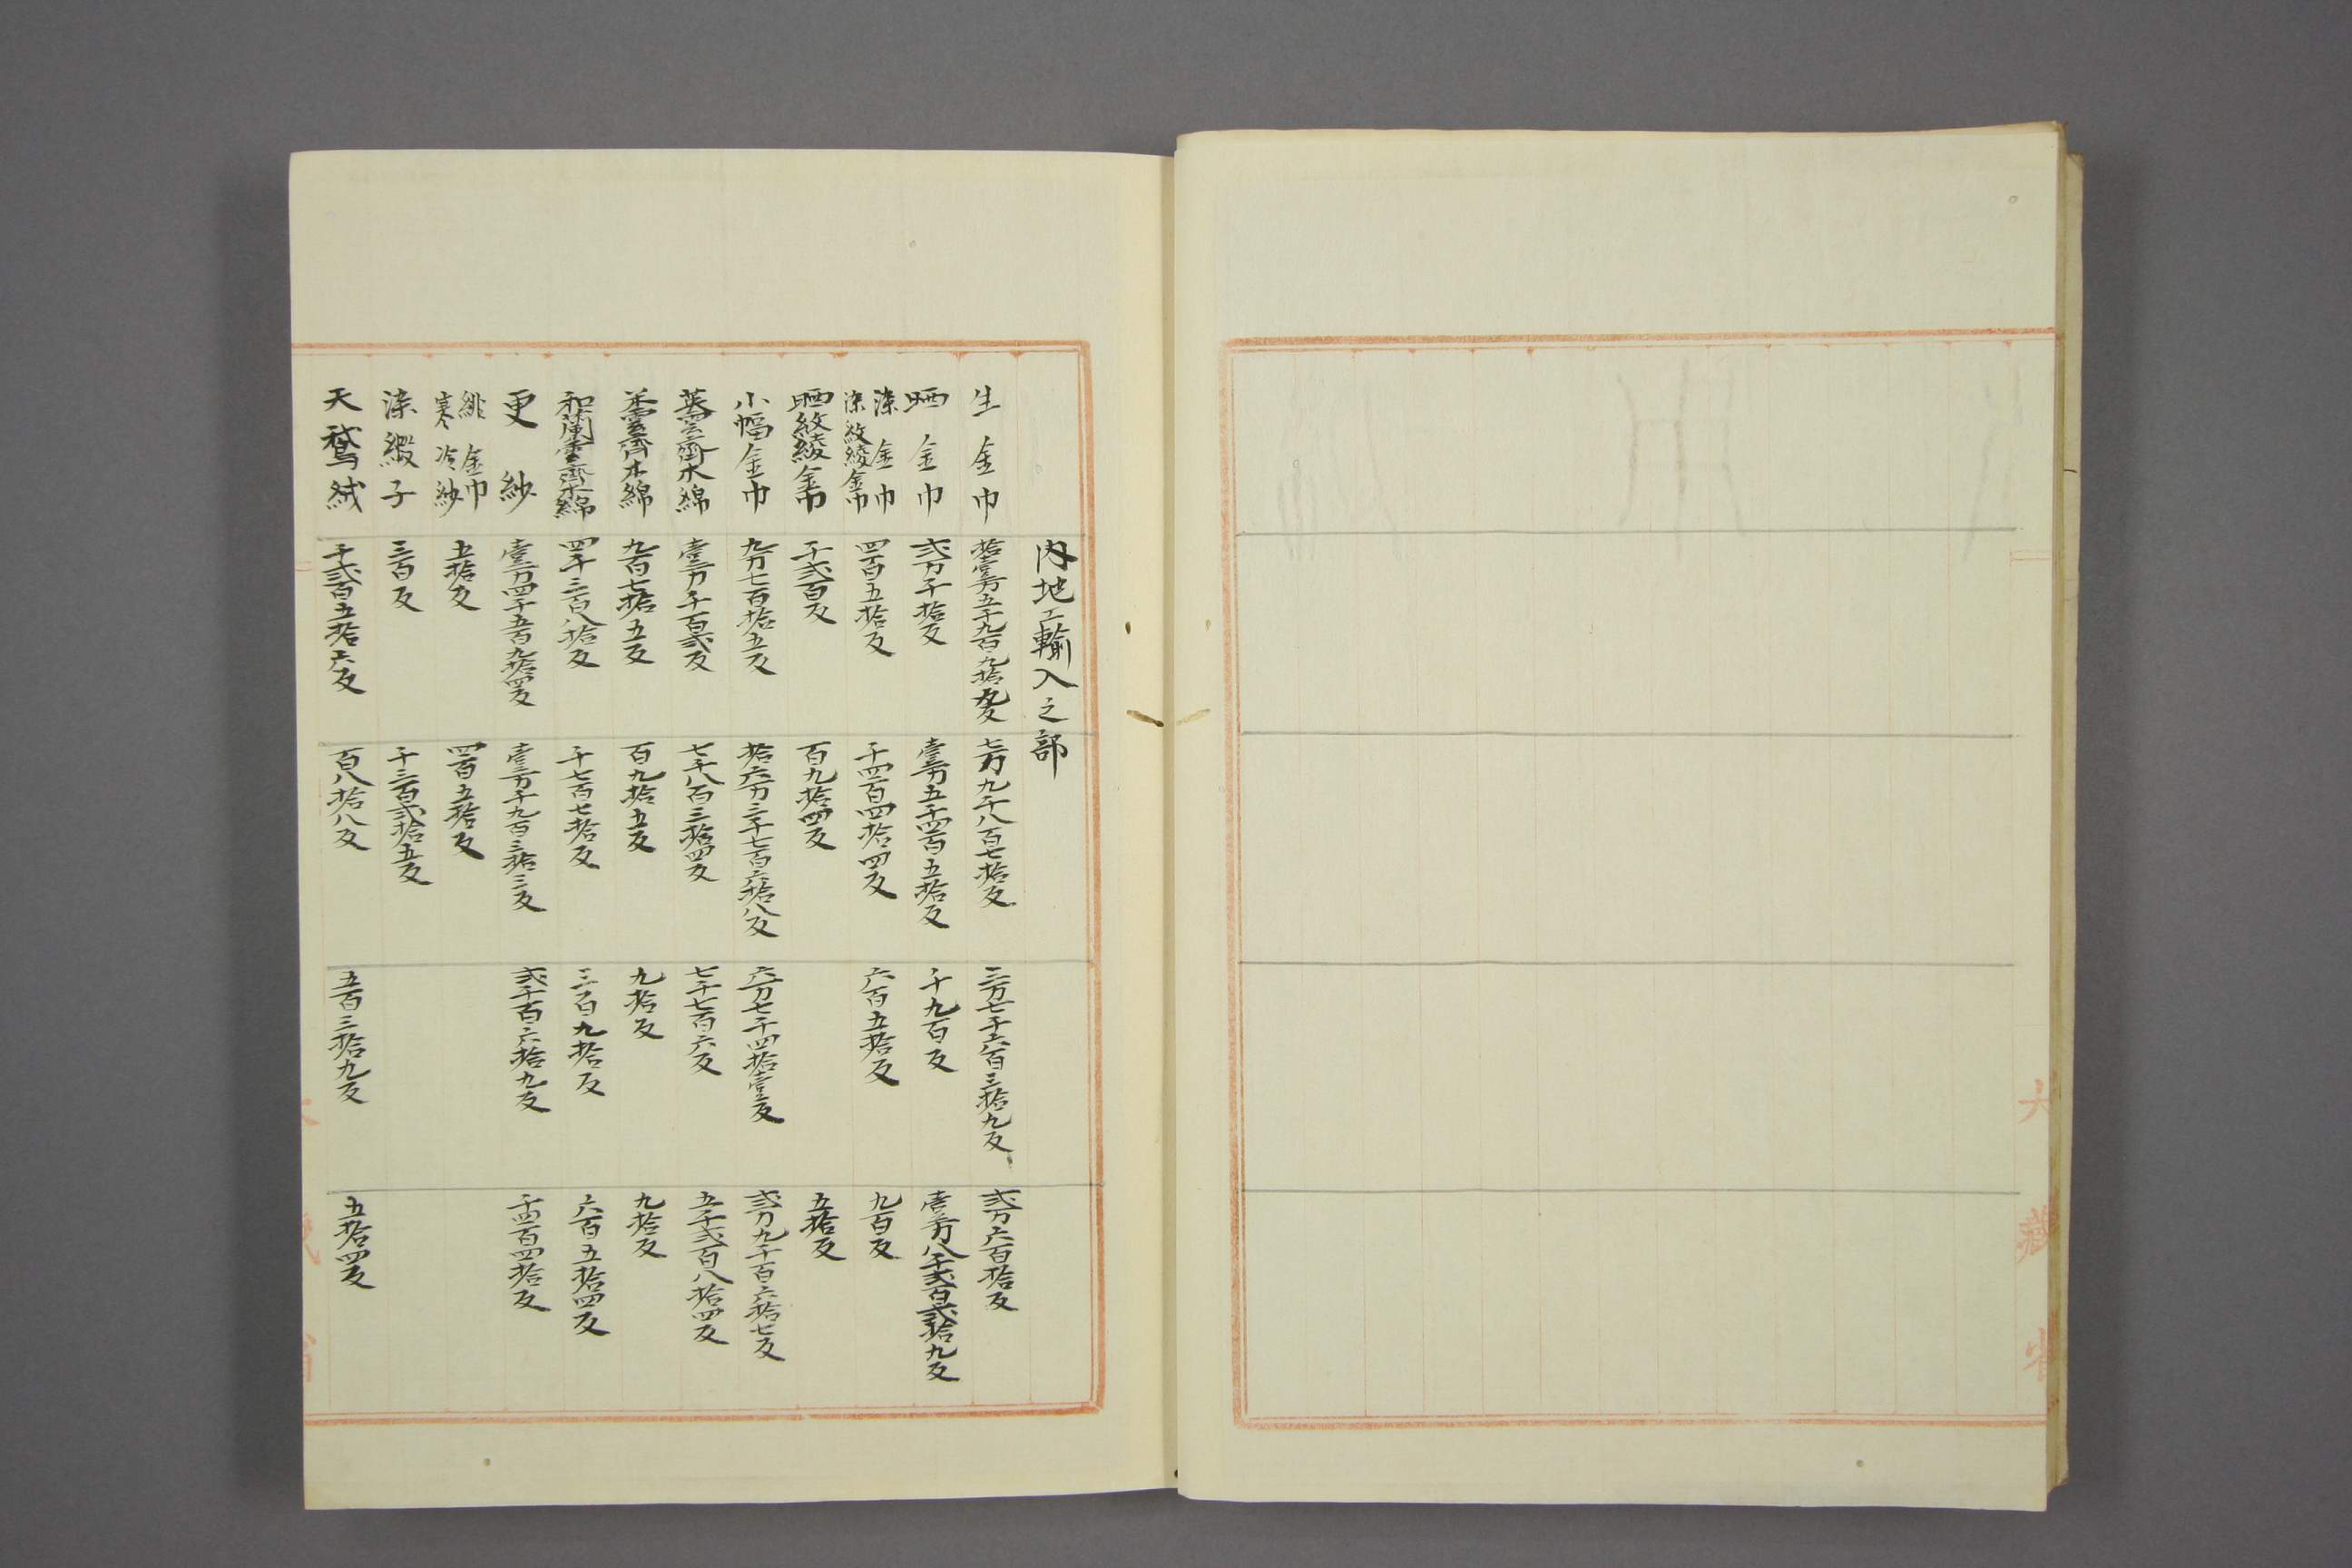 大藏省
内地エ輸入之部
生金巾 拾壹万五千九百九拾九反 七万九千八百七拾反 三万七千六百三拾九反 貳万六百拾反
晒金巾 貳万千拾反 壹万五千四百五拾反 千九百反 壹万八千貳百貳拾九反
染金巾
染紋綾金巾 四百五拾反 千四百四拾四反 六百五拾反 九百反
晒紋綾金巾 千貳百反 百九拾四反 五拾反
小幅金巾 九万七百拾五反 拾六万三千七百六拾八反 六万七千四拾壹反 貳万九千百六拾七反
英雲齋木綿 壹万千百貳反 七千八百三拾四反 七千七百六反 五千貳百八拾四反
米雲齋木綿 九百七拾五反 百九拾五反 九拾反 九拾反
和蘭雲齋木綿 四千三百八拾反 千七百七拾反 三百九拾反 六百五拾四反
更紗 壹万四千五百九拾四反 壹万千九百三拾三反 貳千百六拾九反 千四百四拾反
緋金巾
寒冷紗 五拾反 四百五拾反
染緞子 三百反 千三百貳拾五反
天鵞絨 千貳百五拾六反 百八拾八反 五百三拾九反 五拾四反